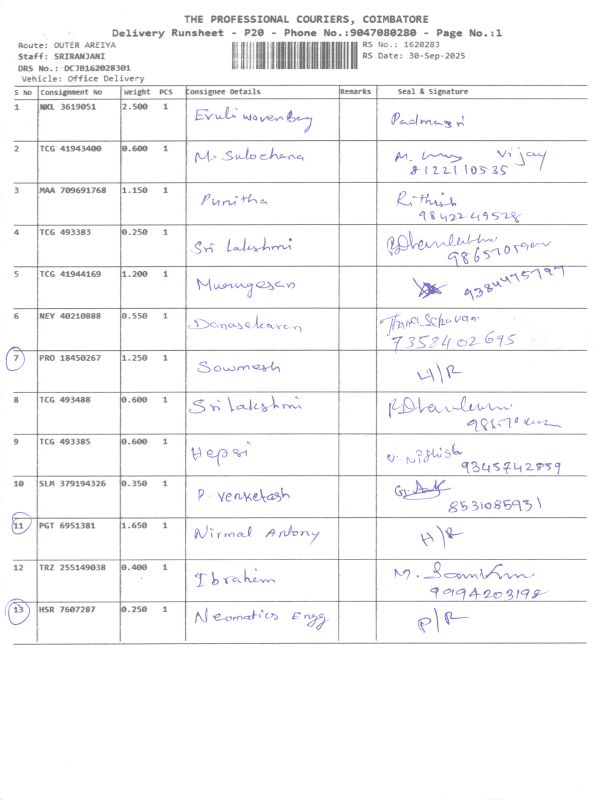 THE PROFESSIONAL COURIERS, COIMBATORE
Delivery Runsheet - P20 - Phone No.:9047080280 - Page No.:1
Route: OUTER AREIYA
RS No.: 1620283
Staff: SRIRANJANI
RS Date: 30-Sep-2025
DRS No.: DCJB162028301
Vehicle: Office Delivery
S No Consignment No Weight PCS Consignee Details Remarks Seal & Signature
1 NKL 3619051 2.500 1 Padmasri
2 TCG 41943400 0.600 1 M. Sulochana M. Vijay
8122110535
3 MAA 709691768 1.150 1 Punitha Rithish
9842249528
4 TCG 493383 0.250 1 Sri Lakshmi
5 TCG 41944169 1.200 1 Murugesan
6 NEY 40210888 0.550 1 Danasekaran
7358402695
7 PRO 18450267 1.250 1 Sowmesh H/R
8 TCG 493488 0.600 1 Sri Lakshmi
9 TCG 493385 0.600 1 Hepsi
9345742859
10 SLM 379194326 0.350 1 P. Venketash
8531085931
11 PGT 6951381 1.650 1 Nirmal Antony H/R
12 TRZ 255149038 0.400 1 Ibrahim M.
9994203198
13 HSR 7607287 0.250 1 Neomatics Engg P/R